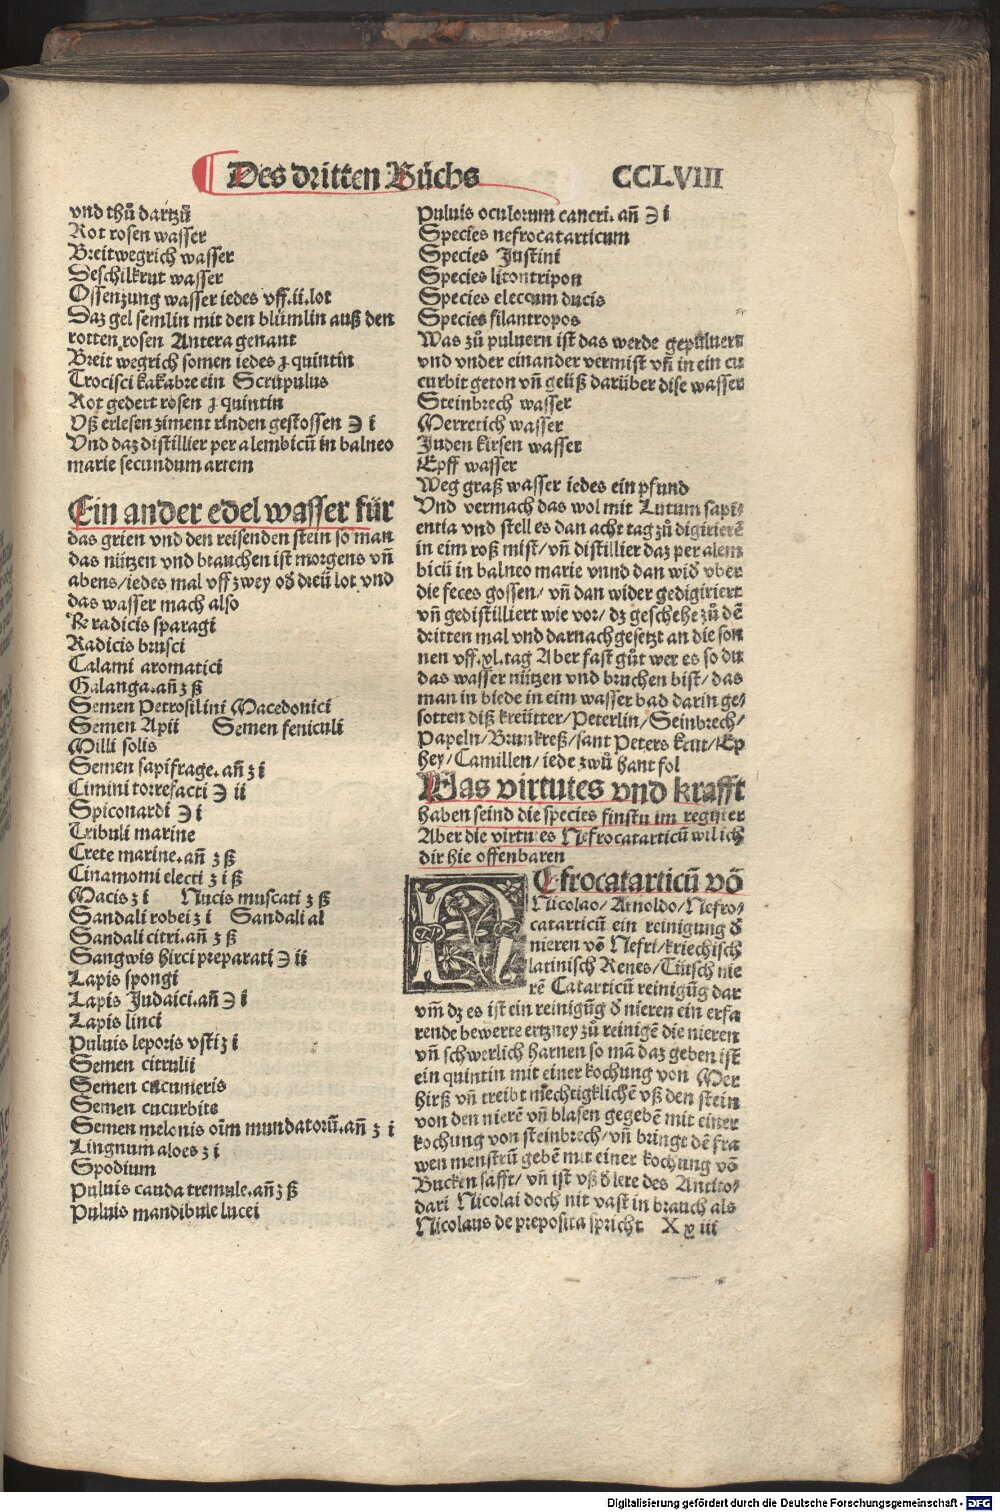 Des dritten Bůchs CCLVIII
vnd thů dartzů
Rot rosen wasser
Breitwegrich wasser
Deschilkrut wasser
Ossenzung wasser iedes vff.ii.lot
Daz gel semlin mit den blümlin auß den
rotten rosen Antera genant
Breit wegrich somen iedes ꝛ quintin
Trocisci kakabre ein Scrupulus
Rot gedert rosen ꝛ quintin
Vß erlesen ziment rinden gestossen ℈ i
Vnd daz distillier per alembicū in balneo
marie secundum artem
Ein ander edel wasser für
das grien vnd den reisenden stein so man
das nützen vnd brauchen ist morgens vñ
abens/iedes mal vff zwey oď dreü lot vnd
das wasser mach also
℞ radicis sparagi
Radicis brusci
Calami aromatici
Galanga.añ ʒ ß
Semen Petrosilini Macedonici
Semen Apii Semen feniculi
Milli solis
Semen sapifrage.añ ʒ i
Cimini torrefacti ℈ ii
Spiconardi ℈ i
Tribuli marine
Crete marine.añ ʒ ß
Cinamomi electi ʒ i ß
Macis ʒ i Nucis muscati ʒ ß
Sandali robei ʒ i Sandali al
Sandali citri.añ ʒ ß
Sangwis hirci preparati ℈ ii
Lapis spongi
Lapis Judaici.añ ℈ i
Lapis linci
Puluis leporis vsti ʒ i
Semen citrulii
Semen cucumeris
Semen cucurbite
Semen melonis oīm mundatorū.añ ʒ i
Lingnum aloes ʒ i
Spodium
Puluis cauda tremule.añ ʒ ß
Puluis mandibule lucei
Puluis oculorum cancri.añ ℈ i
Species nefrocatarticum
Species Justini
Species litontripon
Species eleccum ducis
Species filantropos
Was zů puluern ist das werde gepüluert
vnd vnder einander vermist vñ in ein cu
curbit geton vñ geüß darüber dise wasser
Steinbrech wasser
Merretich wasser
Juden kirsen wasser
Epff wasser
Weg graß wasser iedes ein pfund
Vnd vermach das wol mit Lutum sapi⸗
entia vnd stell es dan acht tag zů digirierē
in eim roß mist/vñ distillier daz per alem
bicū in balneo marie vnnd dan wiď vber
die feces gossen/vñ dan wider gedigiriert
vñ gedistilliert wie vor/dz geschehe zů dē
dritten mal vnd darnach gesetzt an die son
nen vff.xl.tag Aber fast gůt wer es so du
das wasser nützen vnd bruchen bist/das
man in biede in eim wasser bad darin ge⸗
sotten diß kreütter/Peterlin/Seinbrech/
Papeln/Brunkreß/sant Peters krut/Ep
hey/Camillen/iede zwů hant fol
Was virtutes vnd krafft
haben seind die species finstu im register
Aber die virtutes Nefrocatarticū wil ich
dir hie offenbaren
NEfrocatarticū võ
Nicolao/Arnoldo/Nefro⸗
catarticū ein reinigung ď
nieren võ Nefri/kriechisch
latinisch Renes/Tütsch nie
rē Catarticū reinigūg dar
vm̄ dz es ist ein reinigūg ď nieren ein erfa
rende bewerte ertzney zů reinigē die nieren
vñ schwerlich harnen so mā daz geben ist
ein quintin mit einer kochung von Mer
hirß vñ treibt mechtigklichē vß den stein
von den nierē vñ blasen gegebē mit einer
kochung von steinbrech/vñ bringt dē fra
wen menstrū gebē mit einer kochung võ
Bucken safft/vñ ist vß ď lere des Antito⸗
dari Nicolai doch nit vast in brauch als
Nicolaus de preposita spricht X x iii
Digitalisierung gefördert durch die Deutsche Forschungsgemeinschaft - DFG